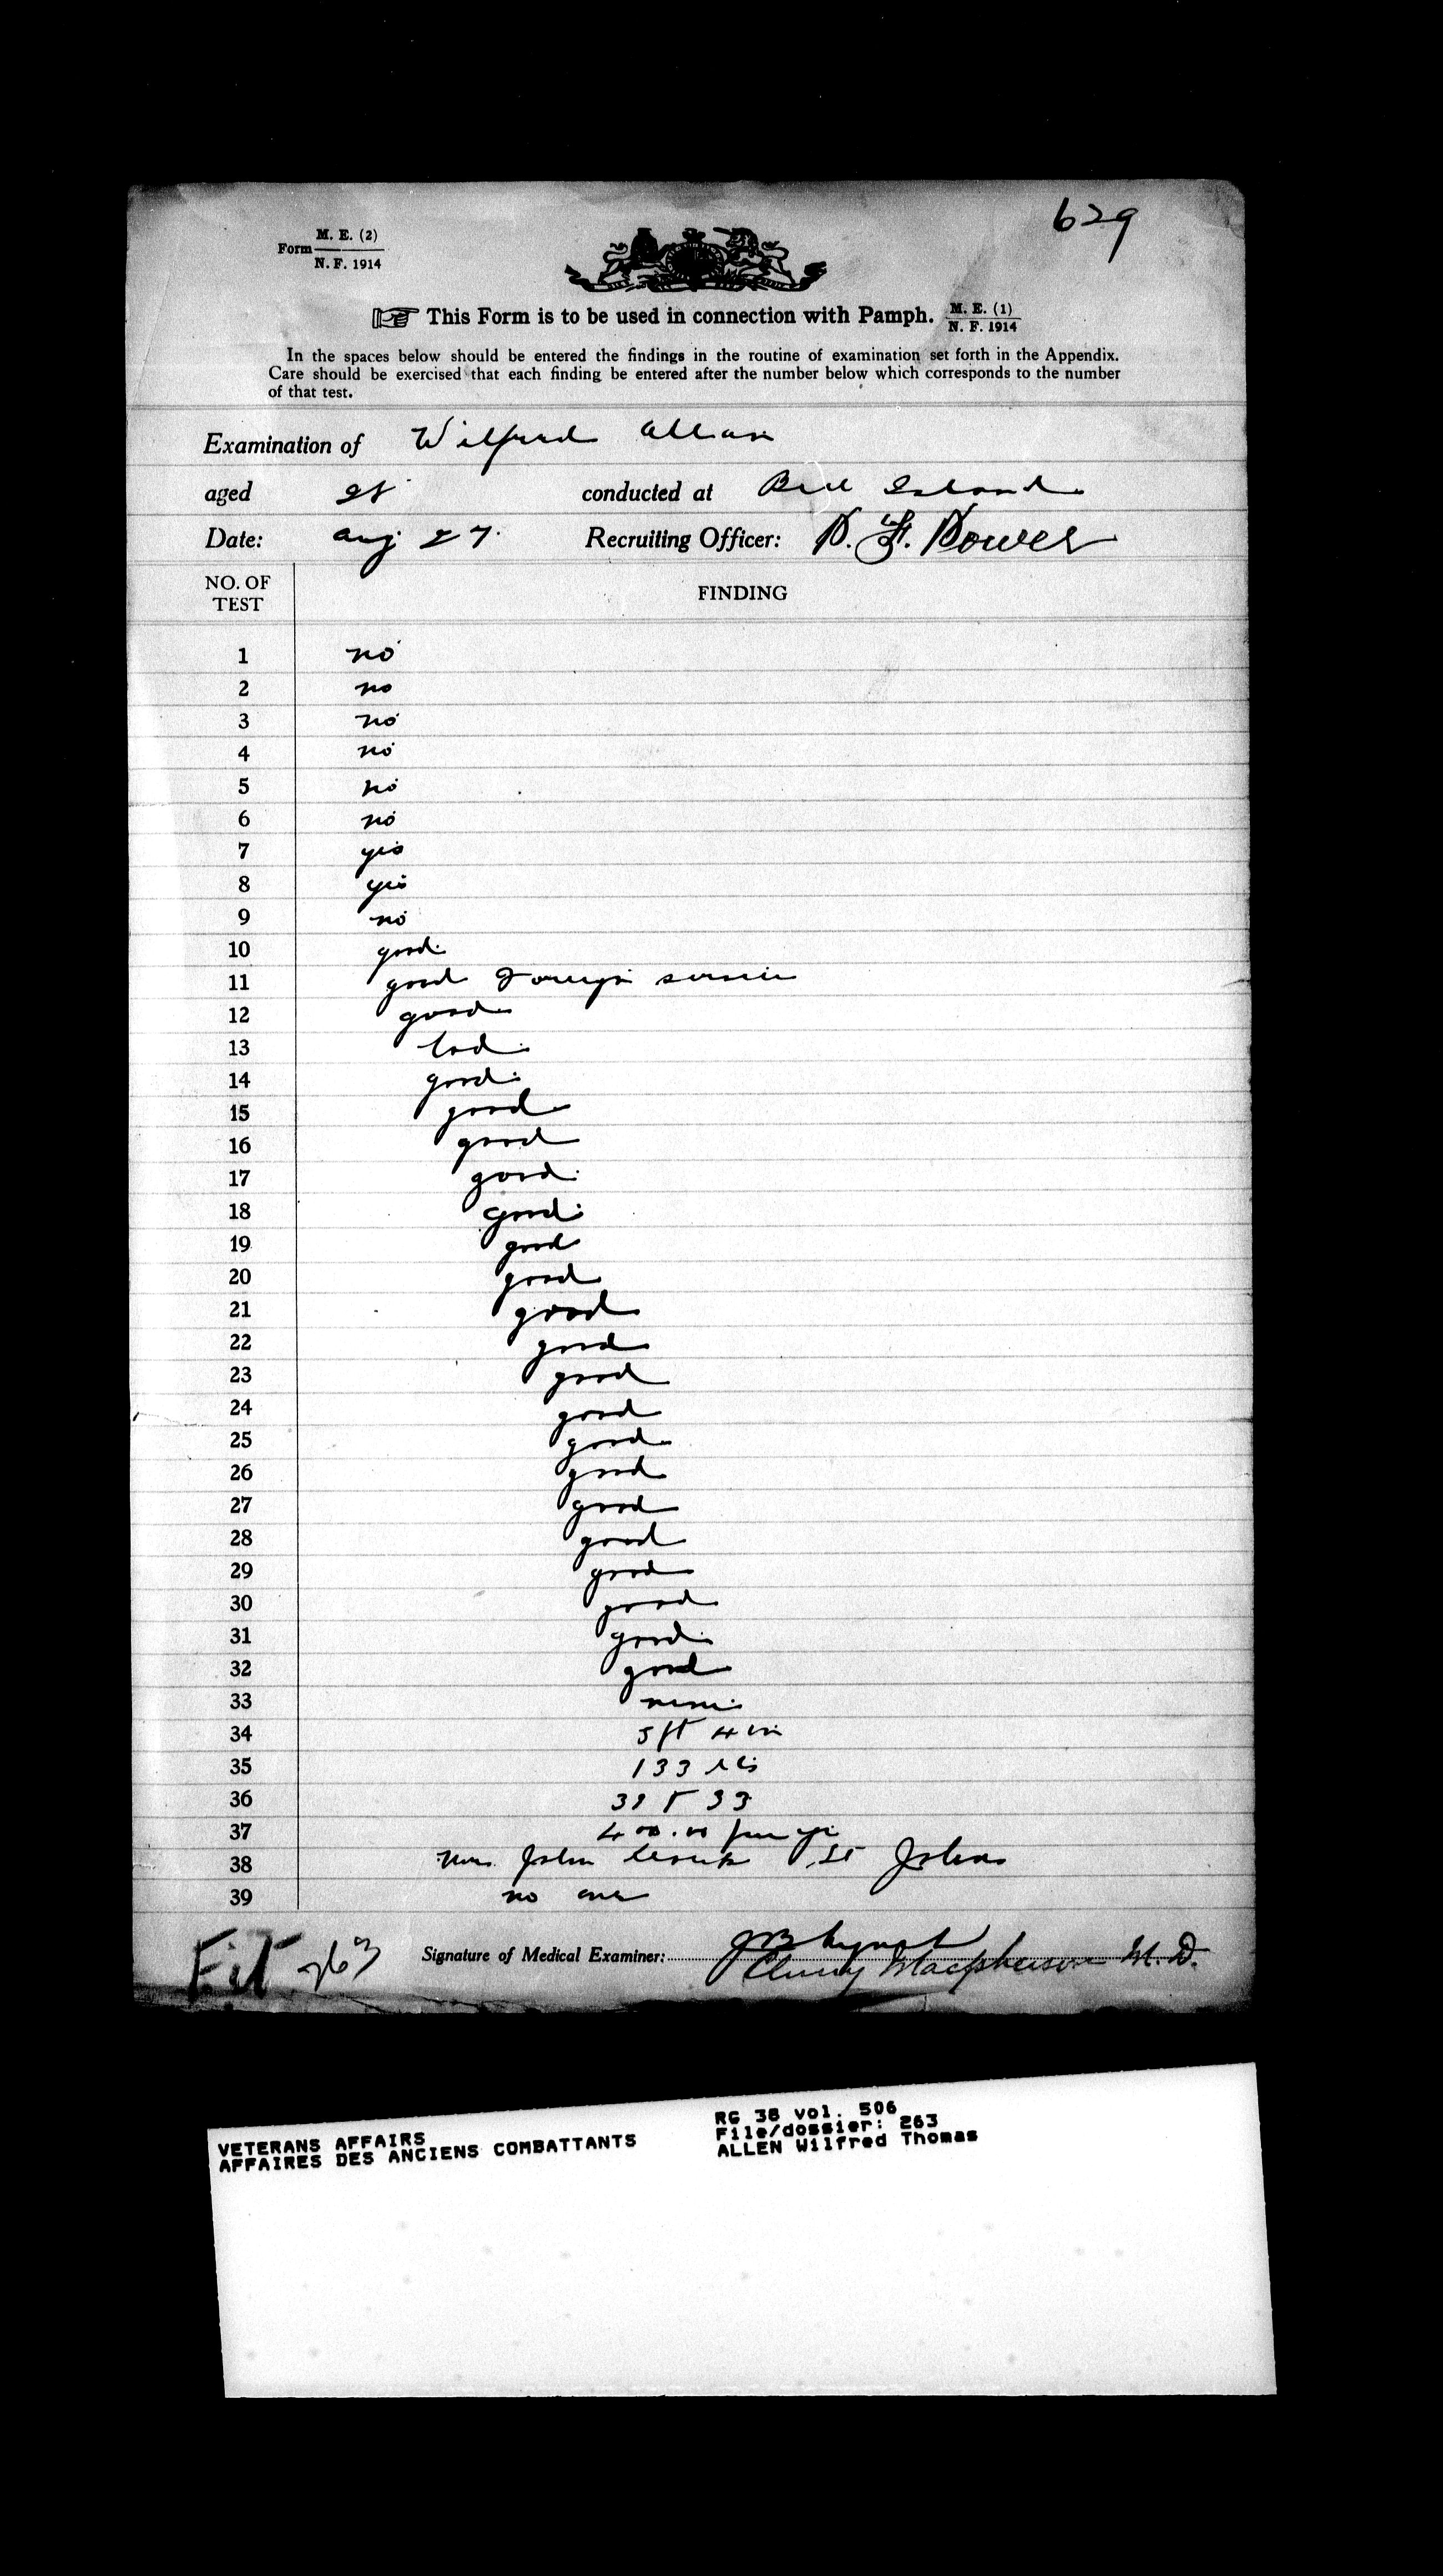 629
Form M. E. (2)
N. F. 1914
This Form is to be used in connection with Pamph. M. E. (1)
N. F. 1914
In the spaces below should be entered the findings in the routine of examination set forth in the Appendix.
Care should be exercised that each finding be entered after the number below which corresponds to the number
of that test.
Examination of Wilfred Allan
aged conducted at Bell Island
Date: Aug 27. Recruiting Officer:
NO. OF TEST FINDING
1 no
2 no
3 no
4 no
5 no
6 no
7 yes
8 yes
9 no
10 good
11 good Foreign service
12 good
13 bad
14 good
15 good
16 good
17 good
18 good
19 good
20 good
21 good
22 good
23 good
24 good
25 good
26 good
27 good
28 good
29 good
30 good
31 good
32 good
33
34 5 ft 4 in
35 133 lbs
36
37 400.00 per yr
38 Mrs. John St Johns
39 no one
Fit 263 Signature of Medical Examiner:
Cluny Macpherson M.D.
VETERANS AFFAIRS
AFFAIRES DES ANCIENS COMBATTANTS
RG 38 vol. 506
File/dossier: 263
ALLEN Wilfred Thomas